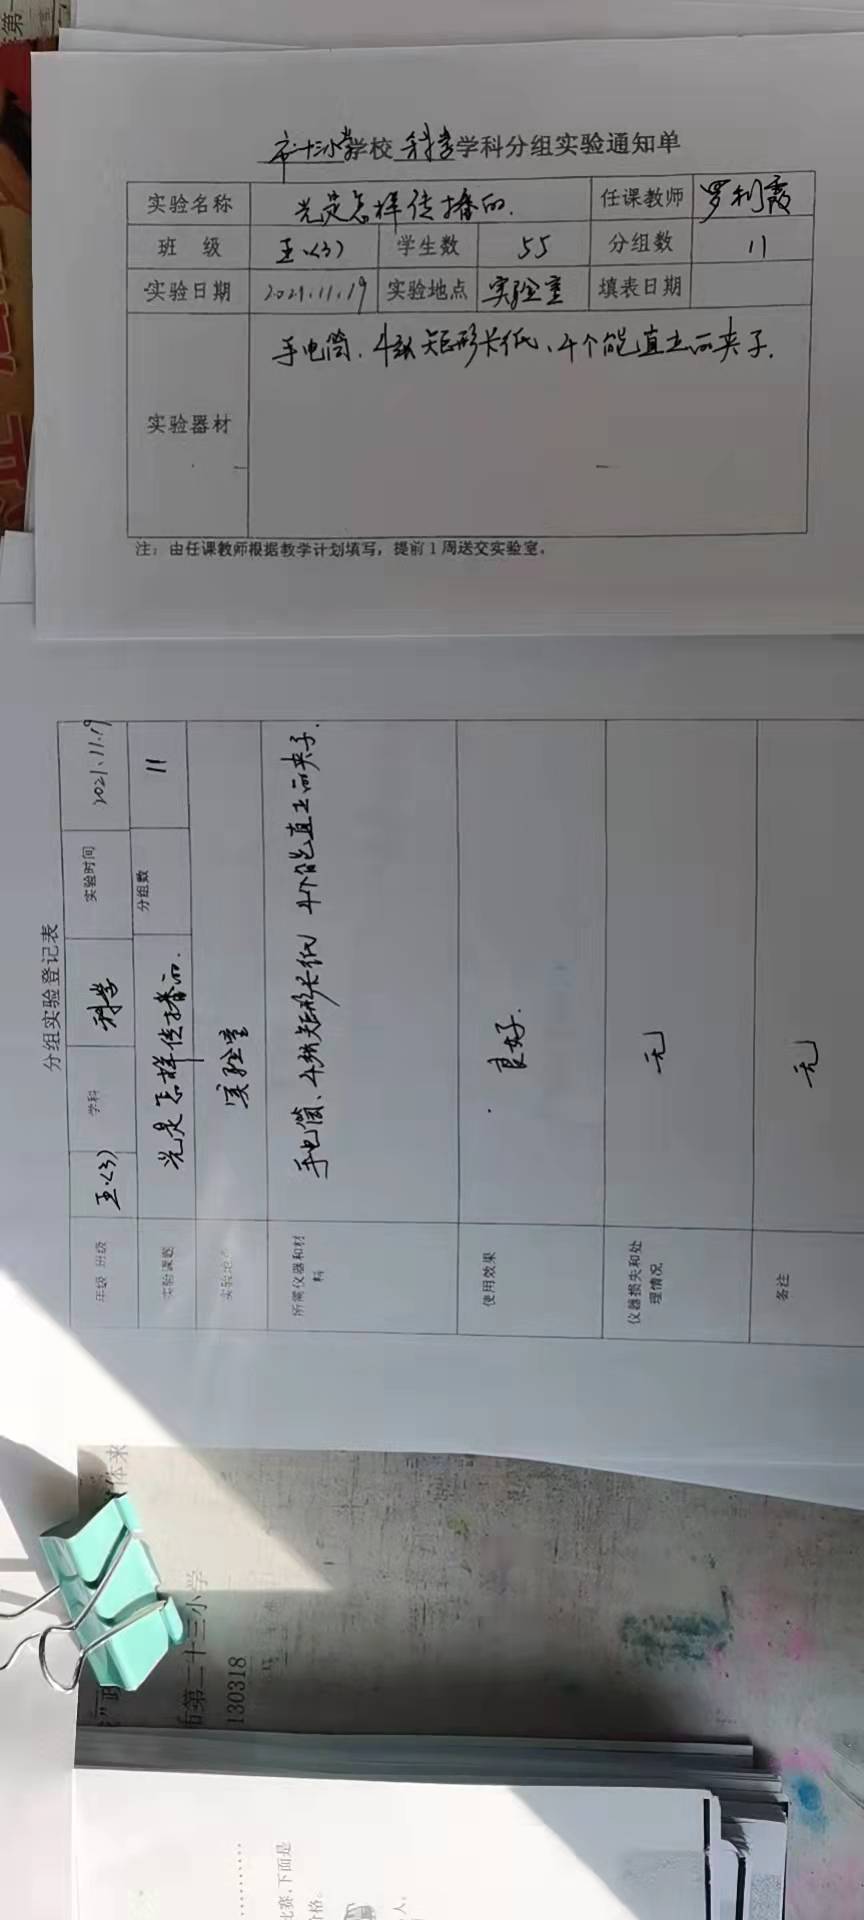 学校 科学 学科分组实验通知单
实验名称 光是怎样传播的. 任课教师 罗利霞
班 级 五.(3) 学生数 55 分组数 11
实验日期 2021.11.19 实验地点 实验室 填表日期
实验器材 手电筒、4张矩形长纸、4个能直立的夹子.
注：由任课教师根据教学计划填写，提前1周送交实验室。
分组实验登记表
年级 班级 五.(3) 学科 科学 实验时间 2021.11.19
实验课题 光是怎样传播的. 分组数 11
实验地点 实验室
所需仪器和材料 手电筒、4张矩形长纸 4个能直立的夹子.
使用效果 良好.
仪器损失和处理情况 无
备注 无
体来
市第二十三小学
130318
比赛,下面是
价格。
人,